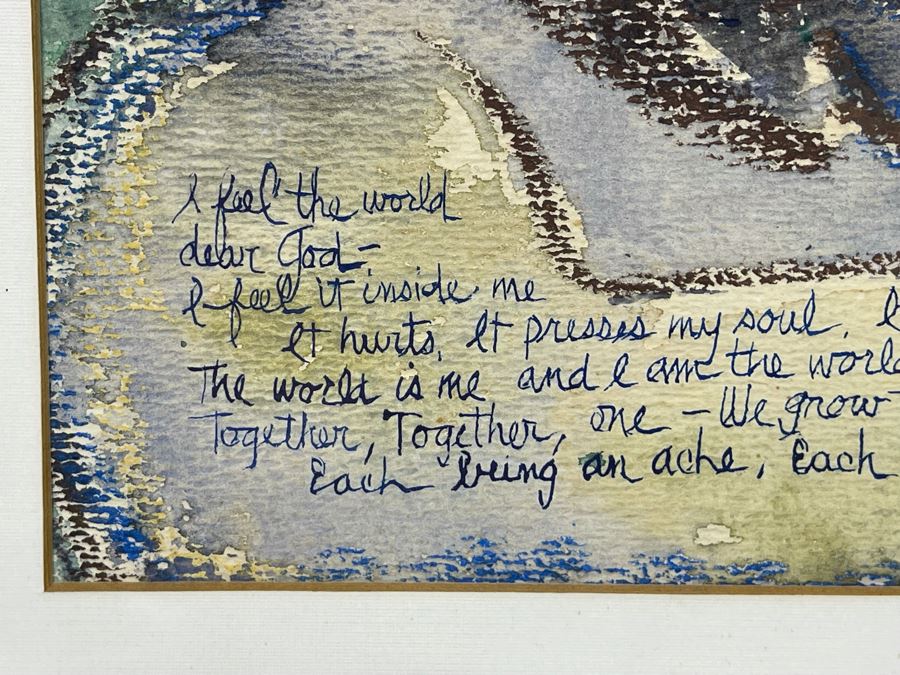 I feel the world
dear God-
I feel it inside me
It hurts, It presses my soul, I
The world is me and I am the world
Together, Together, one - We grow
Each being an ache, Each